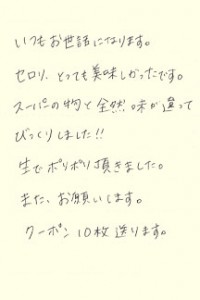 いつもお世話になります。
セロリ、とっても美味しかったです。
スーパーの物と全然味が違って
びっくりしました!!
生でポリポリ頂きました。
また、お願いします。
クーポン10枚送ります。